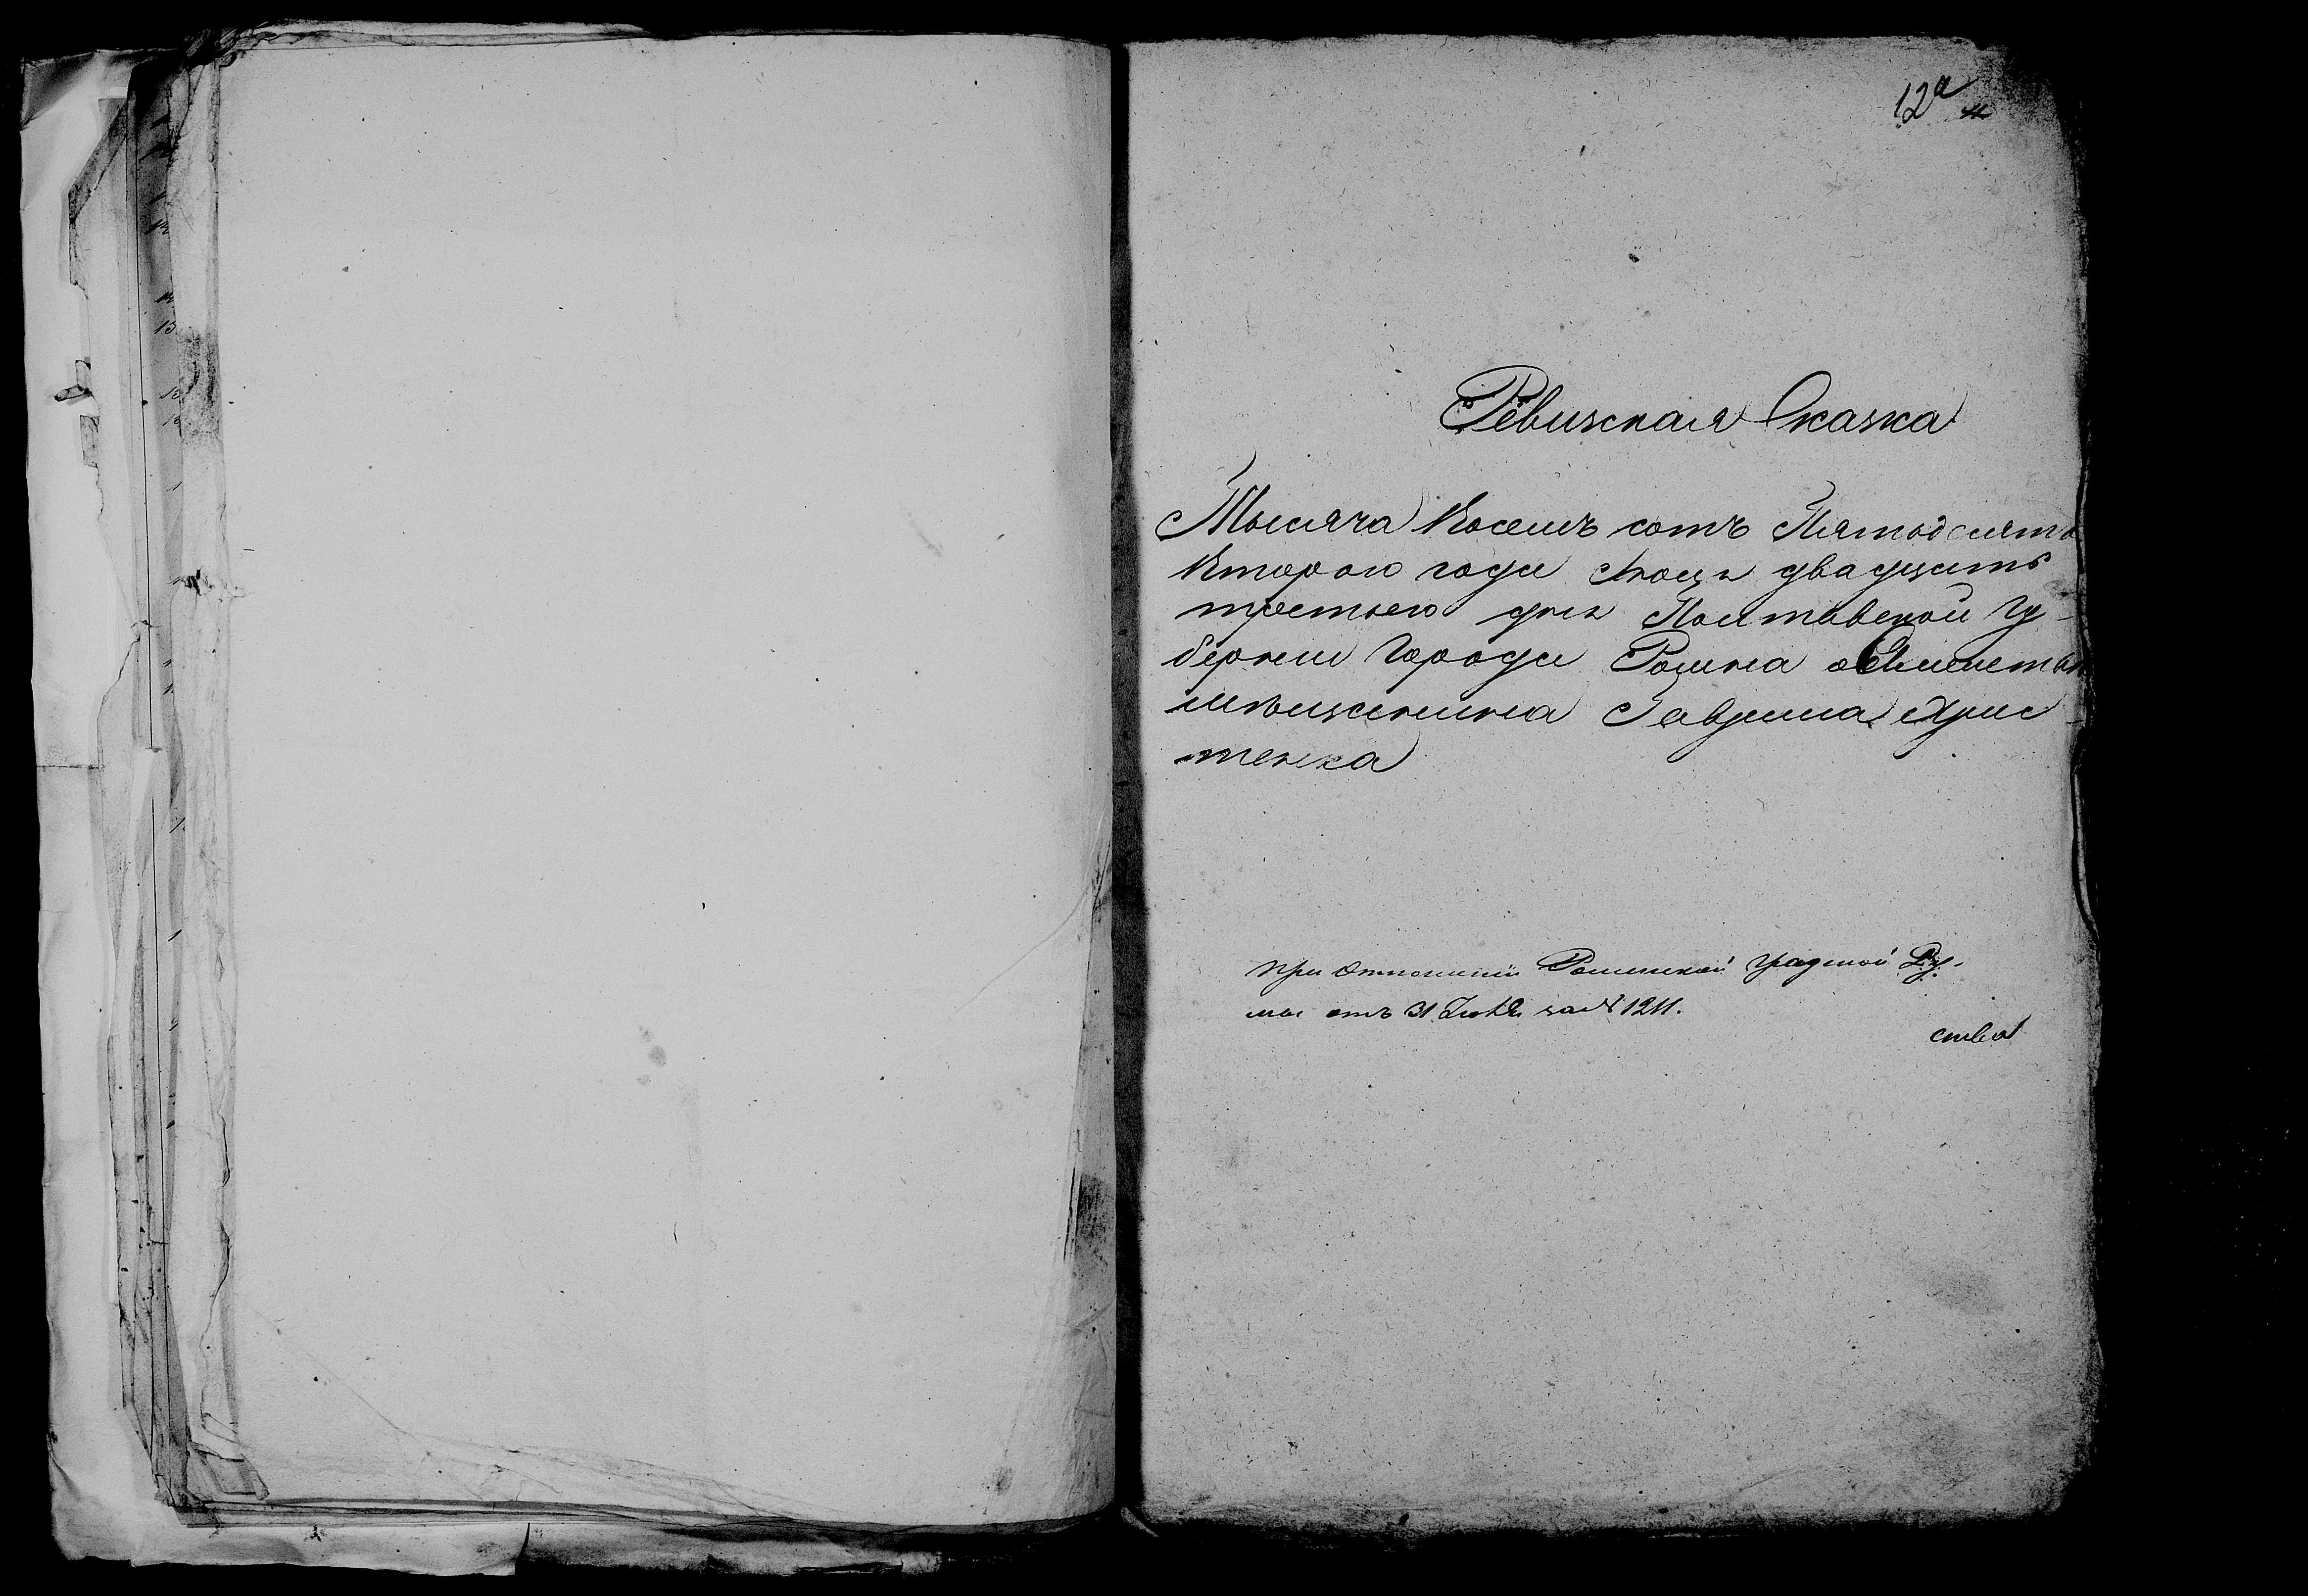 12а
Ревизская Сказка
Тысяча Восемъ сотъ Пятьдесятъ
Втораго года Іюля двадцать
третьего дня Полтавской Гу-
берніи Города Ромна о
мѣщанина Гаврила Хрис-
тенка
при Отношеніи Роменской градской Ду-
мы отъ 31 Іюля за № 1211.